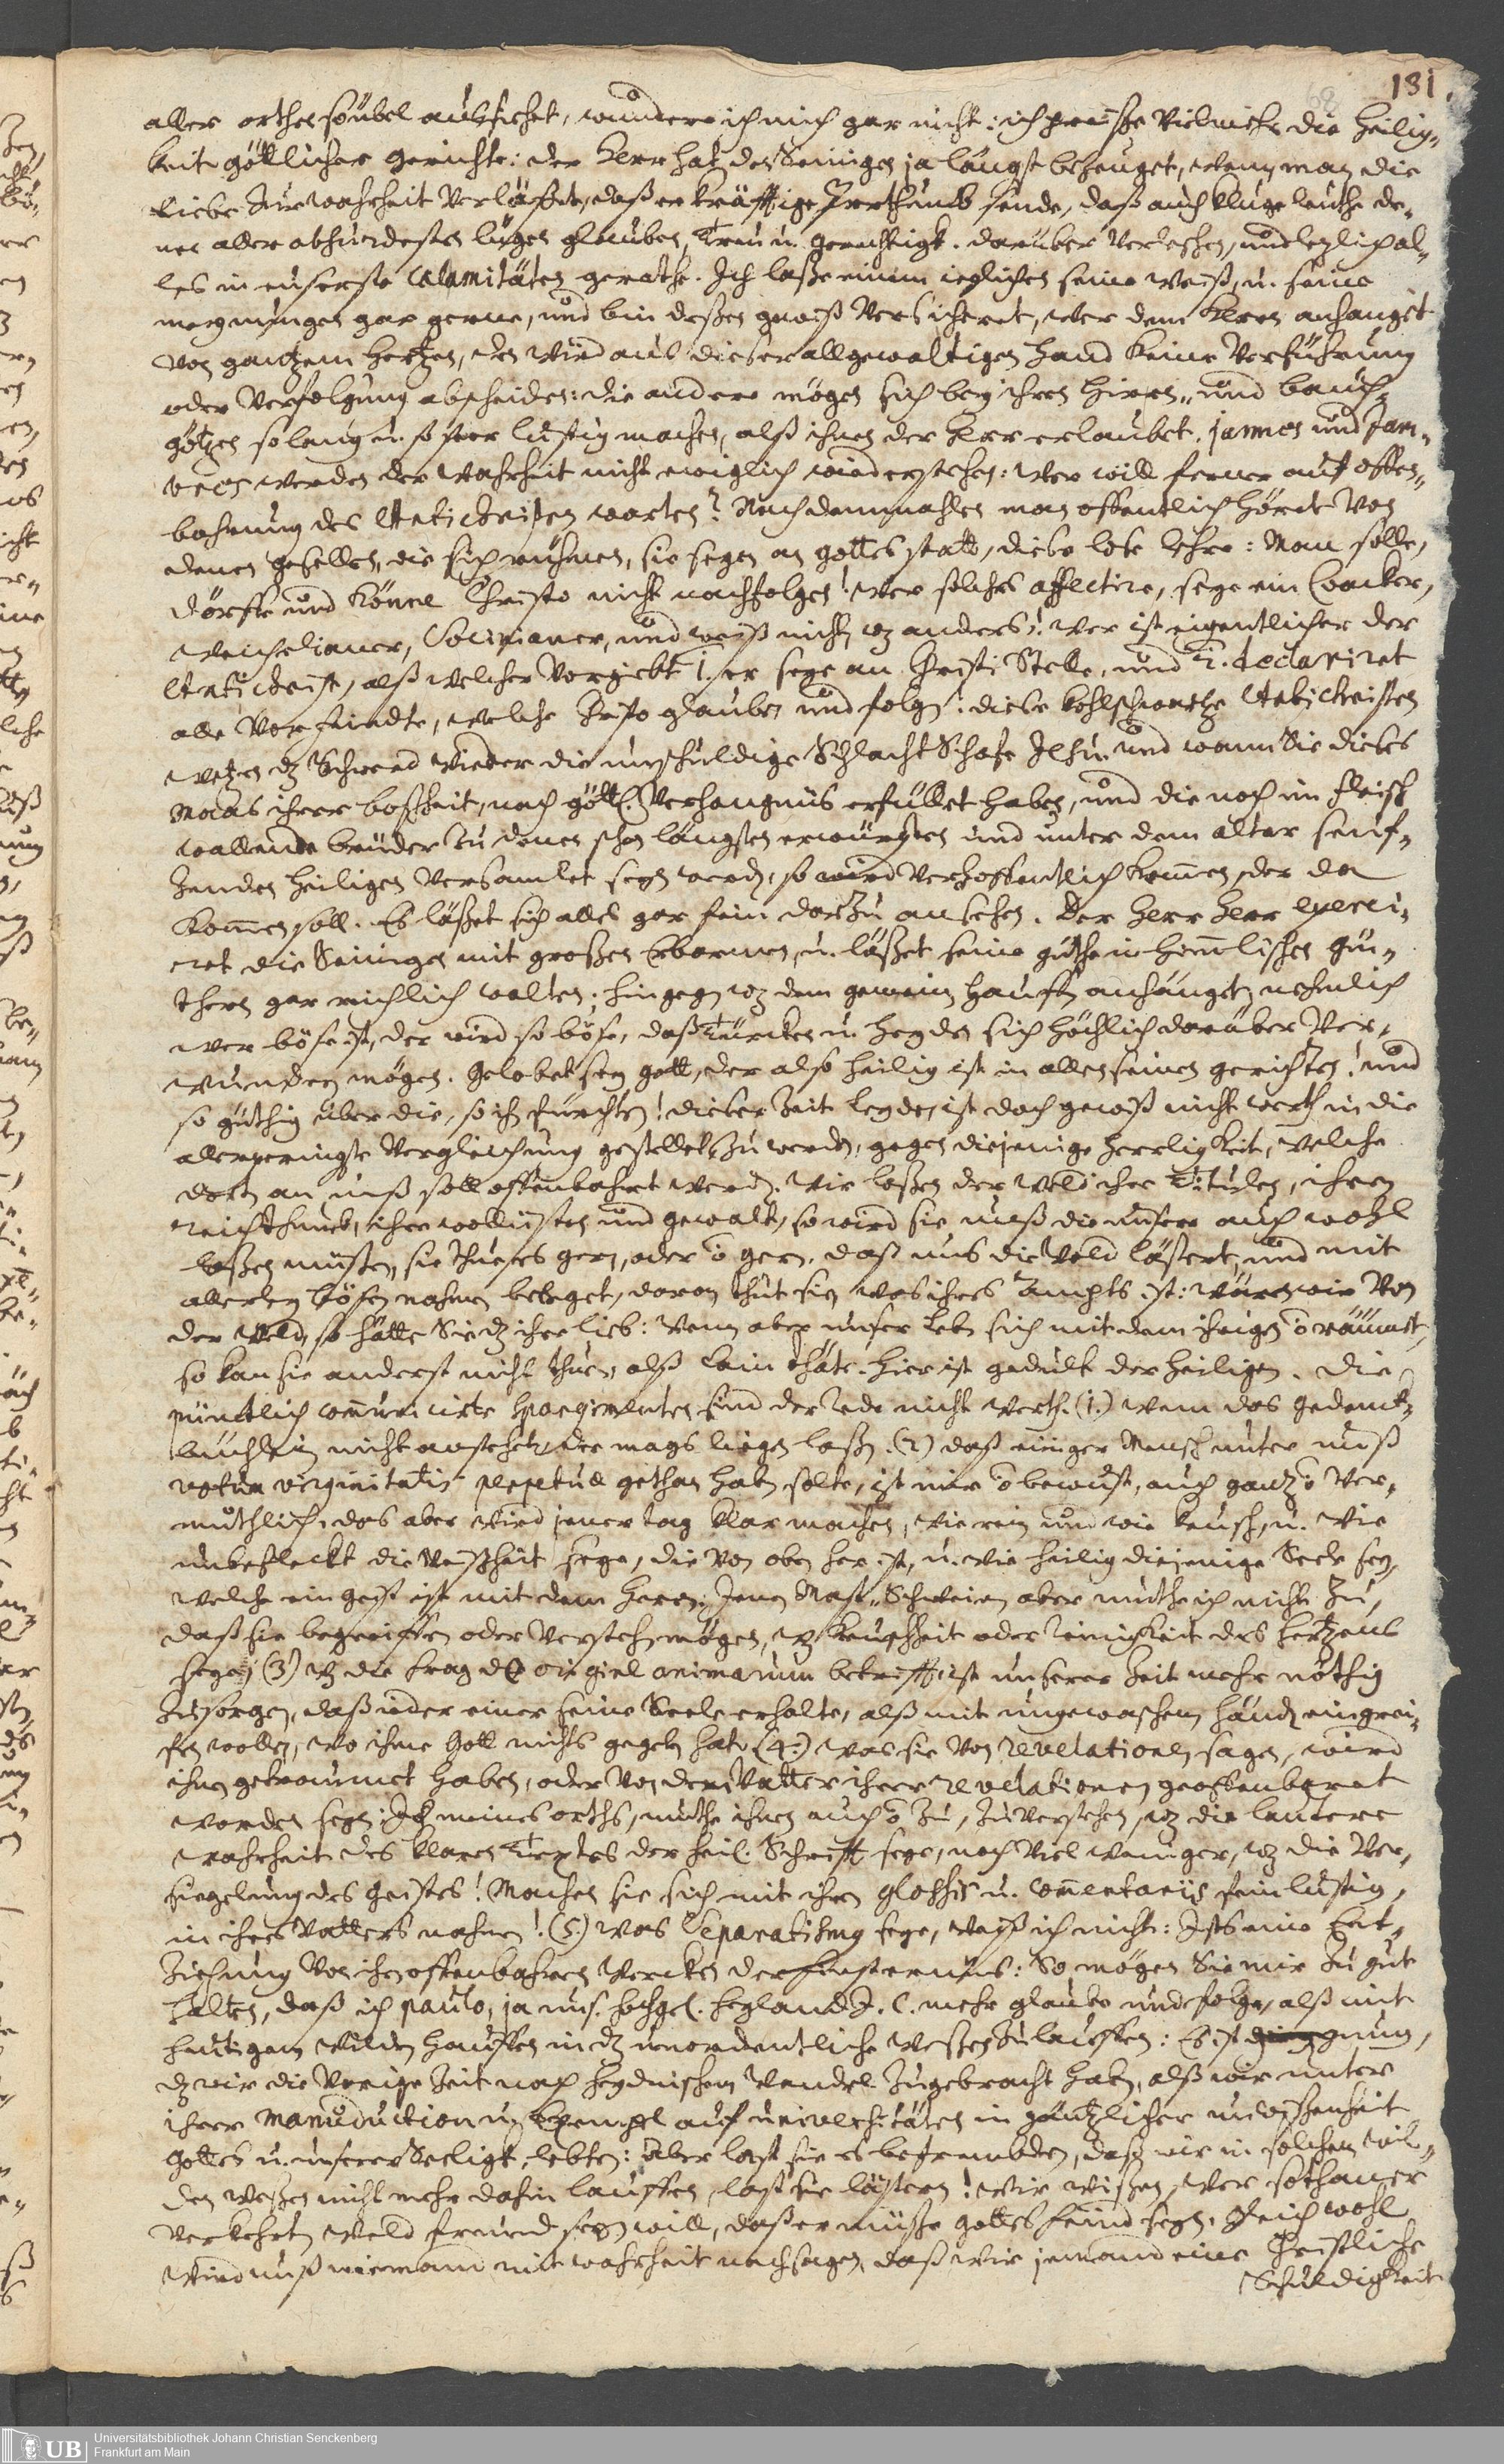 131.
68
aller orthen so übel außsiehet, wundere ich mich gar nicht: ich preiße Vielmehr die Heilig-
keit göttlicher Gerichte: der Herr hatz den Seinigen ja längst bezeuget, wenn man die
Liebe zur wahrheit Verläßet, daß er kräfftige Irrthumb sende, daß auch kluge leuthe de-
nen aller absurdesten lügen glauben, Treu u. Gerechtigk. darüber verleschen, und letzlich al-
les in euserste Calamitäten gerathe. Ich laße einem ieglichen seine Weiß, u. seine
meynungen gar gerne, und bin deßen gewiß Versichert, wer dem Herrn anhanget
von gantzem Hertzen, den wird aus dieser allgewaltigen Hand keine Verführung
oder Verfolgung abscheiden: die andere mögen sich bey ihren Hirn- und bauch-
götzen so lang u. so sehr lustig machen, alß ihnen der Herr erlaubet. Jannes und Jam-
bres werden der Wahrheit nicht ewiglich widerstehen: Wer will ferner auf offen-
bahrung des Antichristen warten? Nachdemmahlen man offentlich höret von
denen gesellen, die sich rühmen, sie seyen an gottes statt, diese lose lehre: Man solle,
dörffe und könne Christo nicht nachfolgen! Wer solches affectire, seye ein Quacker,
Weigelianer, Socinianer, und weiß nicht wz anders! Wer ist eigentlicher der
Antichrist, alß welcher Vorgiebt 1. er seye an Christi Stelle, und 2. declariret
alle Vor feindte, welche Christo glauben und folgen: diese kohlschwartze Antichristen
wetzen dz Schwerd wieder die unschuldige Schlacht Schafe Jesu. und wann Sie dieses
Maas ihrer boßheit, nach göttl. Verhangnüs erfüllet haben, und die noch im Fleisch
wallende brüder zu denen schon längsten erwürgten und unter dem altar seuf-
zenden Heiligen versamlet seyn werden, so wird verhoffentlich kommen, der da
kommen soll. Es läßet sich alles gar fein darzu ansehen. Der Herr Herr exerci-
ret die Seinigen mit großem Erbarmen, u. läßet seine güthe in himmlischen gü-
thern gar reichlich walten; hingegen wz dem gemeinen Hauffen anhanget, nehmlich
wer böse ist, der wird so böse, daß Türcken u. Heyden sich höchlich darüber Ver-
wundern mögen. Gelobet sey gott, der also heilig ist in allen seinen gerichten! und
so güthig über die, so ihn fürchten! dieser Zeit leyden, ist doch gewiß nicht werth in die
allergeringste Vergleichung gestellet zu werden, gegen diejenige Herrligkeit, welche
dort an unß soll offenbahrt werden. Wir laßen der Weld ihre Titulen, ihren
Reichthumb, ihre wollüsten und gewalt, so wird sie unß die unsere auch wohl
laßen müßen, sie thue es gern, oder o gern. daß uns die Weld lästert, und mit
allerley bösen nahmen beleget, daran thut sie, was ihres Ampts ist: wären wir Von
der Weld, so hätte Sie dz ihre lieb: Wenn aber unser leben sich mit dem ihrigen o räumet,
so kan sie anderst nicht thun, alß Cain thäte. Hier ist gedult der Heiligen. Die
pünctlich communicirte Spargimenten sind der Rede nicht werth. (1.) Wem das gedenck-
büchlein nicht anstehet, der mags liegen laßen. (2) daß einiger Mensch unter unß
votum virginitatis perpetuae gethan haben solte, ist mir o bewust, auch gantz o Ver-
muthlich, das aber wird jener tag klar machen, wie rein und wie keusch, u. wie
unbefleckt die Weißheit seye, die von oben her ist, u. wie heilig diejenige Seele sey,
welche ein geist ist mit dem Herrn; Jenen Mast-Schweinen aber muthe ich nicht zu,
daß sie begreiffen oder Verstehen mögen, wz Keuschheit oder Reinigkeit des Hertzens
seye, (3) Wz die frag de origine animarum betrifft, ist unserer Zeit mehr nöthig
zu sorgen, daß ieder einer seine Seele erhalte, alß mit ungewaschenen händen eingrei-
fen wollen, wo ihme Gott nichts gegeben hat. (4.) was sie von revelationen sagen, wird
ihnen getraumet haben, oder von dem Vatter ihrer revelationen geoffenbaret
worden seyn: Ich meines orths, muthe ihnen auch o zu, zu verstehen, wz die lautere
wahrheit des klaren Textes der heil. Schrifft seye, noch viel weniger, wz die Ver-
siegelung des Geistes! Machen sie sich mit ihren glossis u. Commentariis fein lustig,
in ihres Vatters nahmen! (5.) was Separatismus seye, weiß ich nicht: Ists eine Ent-
ziehung von ihren offenbahren Wercken der finsternus: So mögen Sie mir zu gut
halten, daß ich Paulo, ja uns. hochgel. Heyland J. C. mehr glaube und folge, alß mit
heutigem wilden Hauffen in dz unordentliche Weßen zulauffen: Es ist genung,
dz wir die Vorige Zeit nach heydnischem Wandel zugebracht haben, alß wir unter
ihrer Manuduction u. Exempel auf universitäten in gäntzlicher unwißenheit
Gottes u. unserer Seeligk. lebten: Aber last sie es befrembden, daß wir in solchem wil-
den weßen nicht mehr dahin lauffen, last sie lästern! Wir wißen, wer sothaner
verkehrten Weld freund seyn will, daß er müße Gottes feind seyn. Gleich wohl
wird unß niemand mit wahrheit nachsagen, daß wir jemand eine Christliche
Schuldigkeit
Universitätsbibliothek Johann Christian Senckenberg
Frankfurt am Main
UB